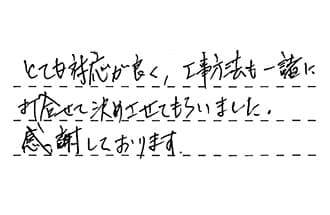 とても対応が良く，工事方法も一諸に
打合せて決めさせてもらいました。
感謝しております.